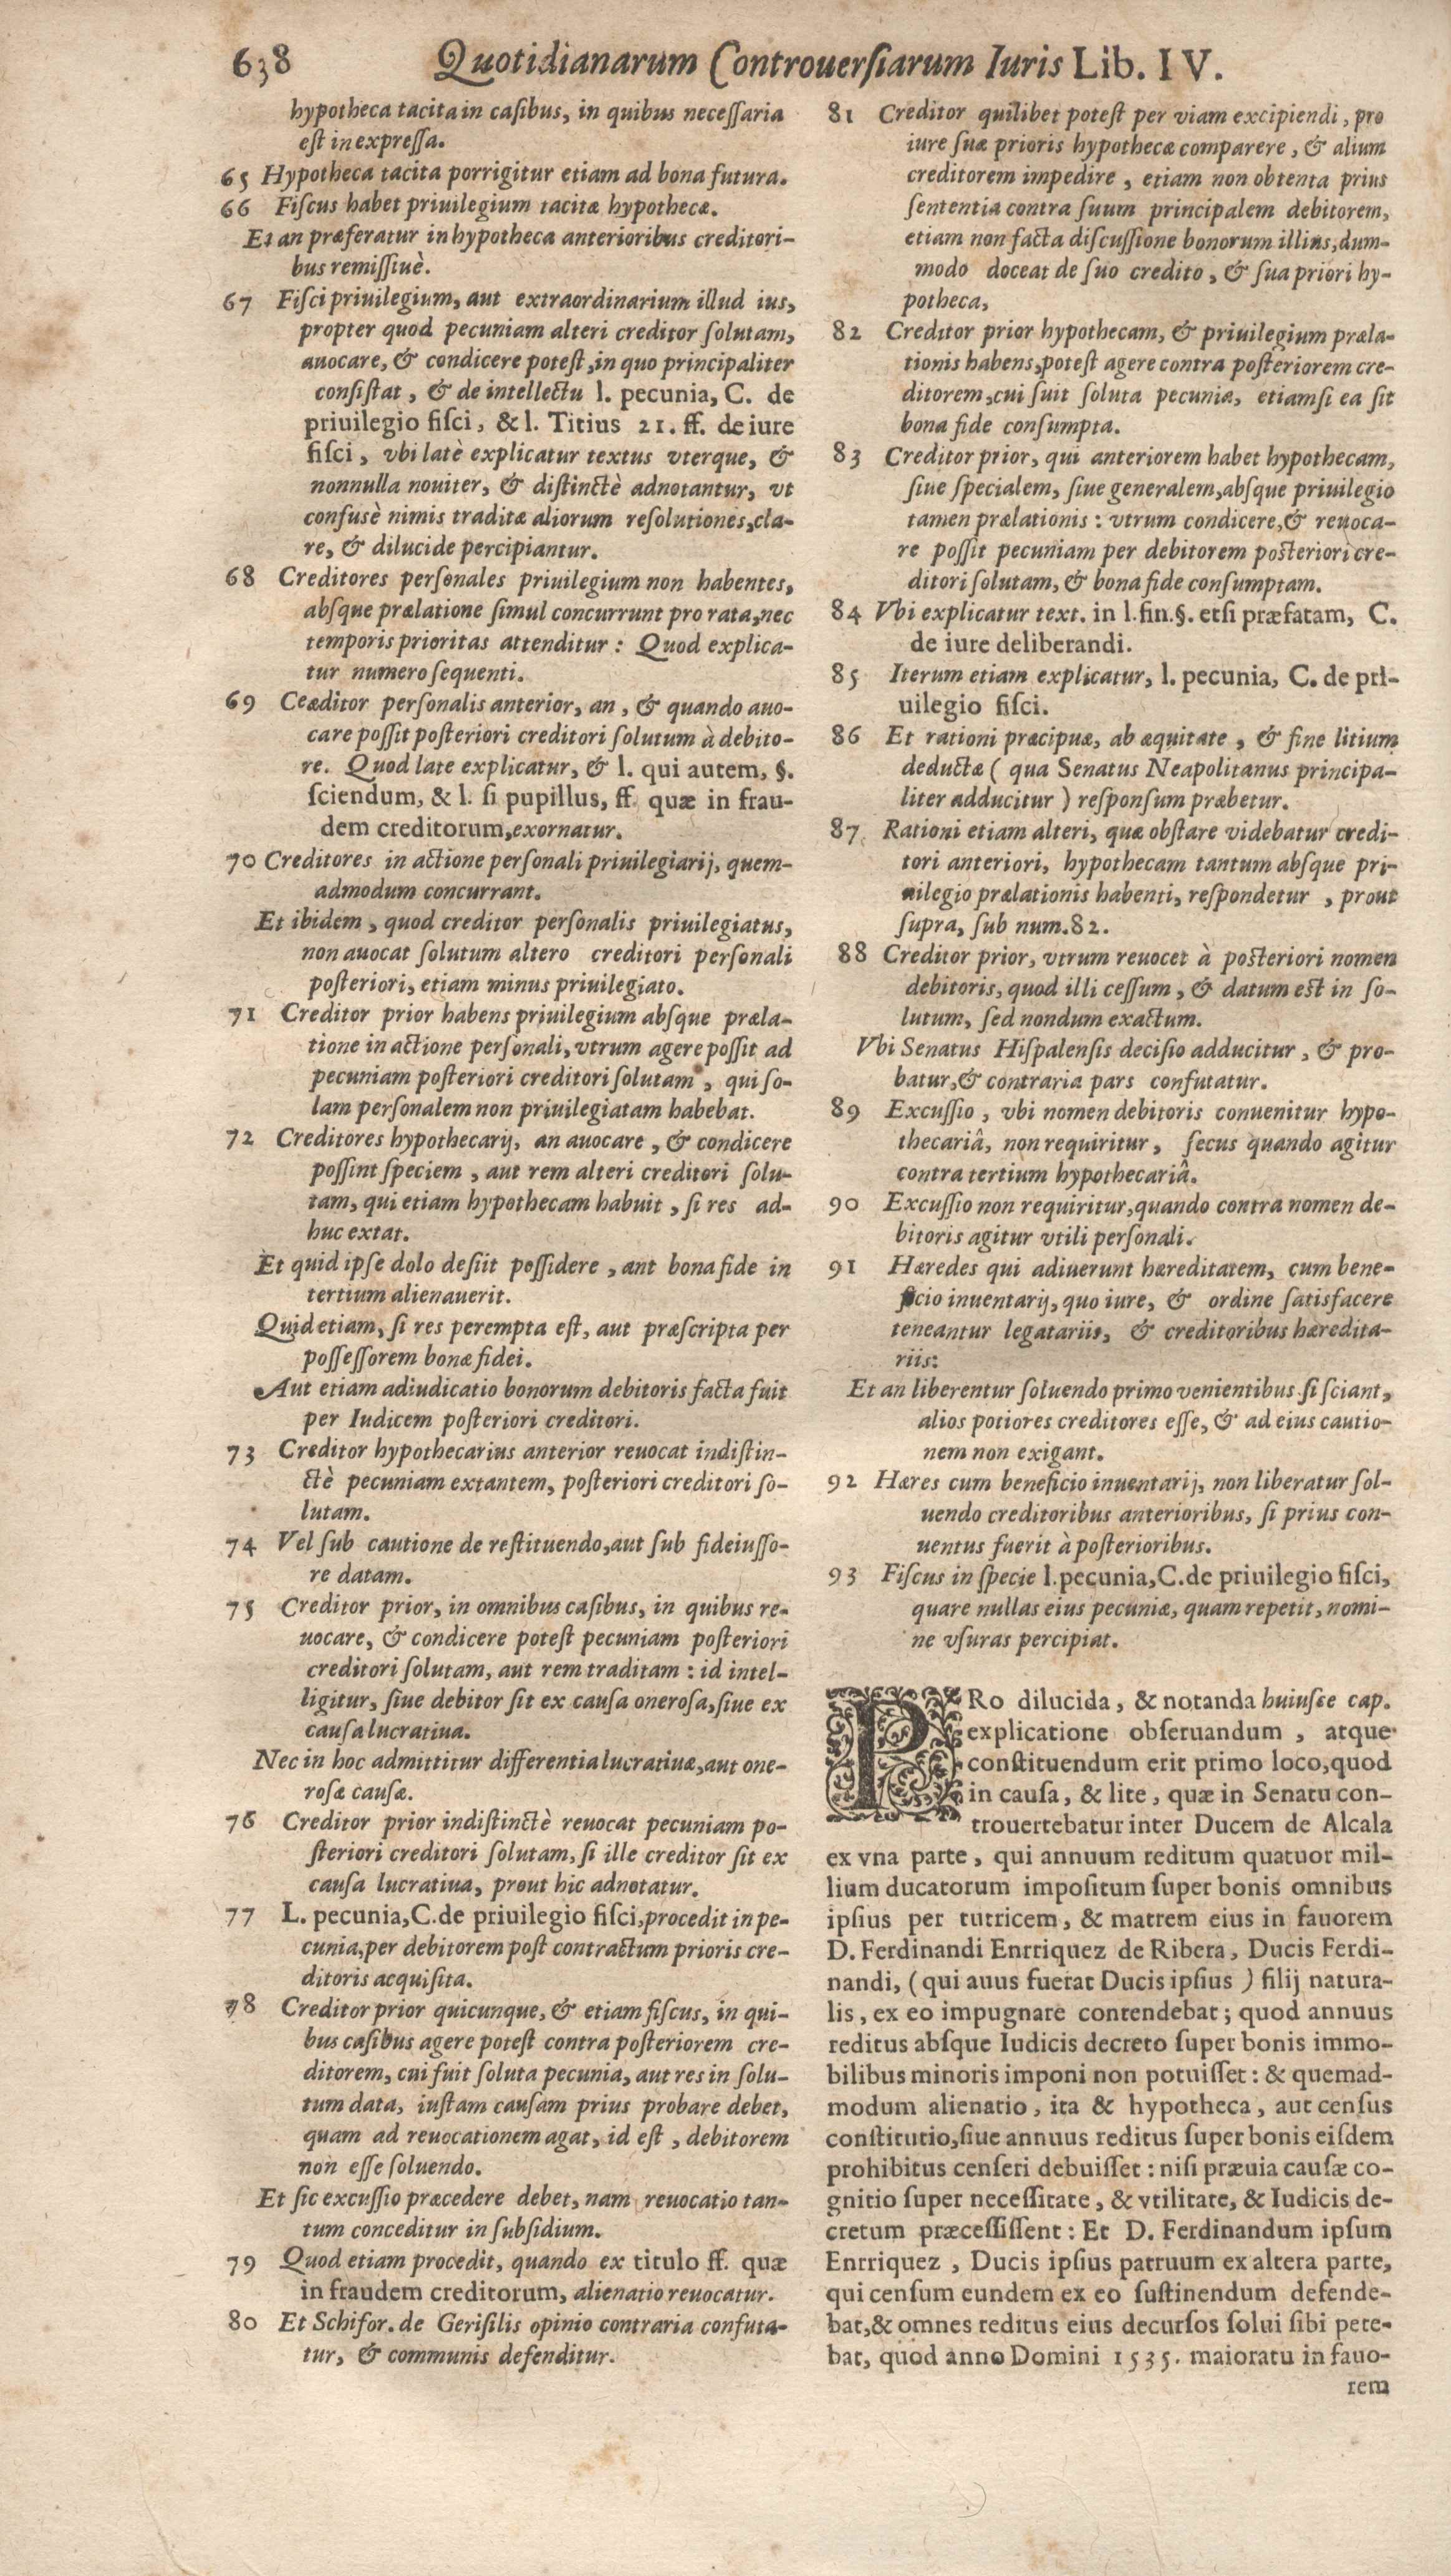 638 Quotidianarum Controuersiarum Iuris Lib. IV.
hypotheca tacita in casibus, in quibus necessaria
est in expressa.
65 Hypotheca tacita porrigitur etiam ad bona futura.
66 Fiscus habet priuilegium tacitæ hypothecæ.
Et an præferatur in hypotheca anterioribus creditori-
bus remissiuè.
67 Fisci priuilegium, aut extraordinarium illud ius,
propter quod pecuniam alteri creditor solutam,
auocare, & condicere potest, in quo principaliter
consistat, & de intellectu l. pecunia, C. de
priuilegio fisci, & l. Titius 21. ff. de iure
fisci, vbi latè explicatur textus vterque, &
nonnulla nouiter, & distinctè adnotantur, vt
confusè nimis traditæ aliorum resolutiones, cla-
re, & dilucide percipiantur.
68 Creditores personales priuilegium non habentes,
absque prælatione simul concurrunt pro rata, nec
temporis prioritas attenditur: Quod explica-
tur numero sequenti.
69 Ceæditor personalis anterior, an, & quando auo-
care possit posteriori creditori solutum à debito-
re. Quod late explicatur, & l. qui autem, §.
sciendum, & l. si pupillus, ff. quæ in frau-
dem creditorum, exornatur.
70 Creditores in actione personali priuilegiarij, quem-
admodum concurrant.
Et ibidem, quod creditor personalis priuilegiatus,
non auocat solutum altero creditori personali
posteriori, etiam minus priuilegiato.
71 Creditor prior habens priuilegium absque præla-
tione in actione personali, vtrum agere possit ad
pecuniam posteriori creditori solutam, qui so-
lam personalem non priuilegiatam habebat.
72 Creditores hypothecarij, an auocare, & condicere
possint speciem, aut rem alteri creditori solu-
tam, qui etiam hypothecam habuit, si res ad-
huc extat.
Et quid ipse dolo desiit possidere, ant bona fide in
tertium alienauerit.
Quid etiam, si res perempta est, aut præscripta per
possessorem bonæ fidei.
Aut etiam adiudicatio bonorum debitoris facta fuit
per Iudicem posteriori creditori.
73 Creditor hypothecarius anterior reuocat indistin-
ctè pecuniam extantem, posteriori creditori so-
lutam.
74 Vel sub cautione de restituendo, aut sub fideiusso-
re datam.
75 Creditor prior, in omnibus casibus, in quibus re-
uocare, & condicere potest pecuniam posteriori
creditori solutam, aut rem traditam: id intel-
ligitur, siue debitor sit ex causa onerosa, siue ex
causa lucratiua.
Nec in hoc admittitur differentia lucratiuæ, aut one-
rosæ causæ.
76 Creditor prior indistinctè reuocat pecuniam po-
steriori creditori solutam, si ille creditor sit ex
causa lucratiua, prout hic adnotatur.
77 L. pecunia, C. de priuilegio fisci, procedit in pe-
cunia, per debitorem post contractum prioris cre-
ditoris acquisita.
78 Creditor prior quicunque, & etiam fiscus, in qui-
bus casibus agere potest contra posteriorem cre-
ditorem, cui fuit soluta pecunia, aut res in solu-
tum data, iustam causam prius probare debet,
quam ad reuocationem agat, id est, debitorem
non esse soluendo.
Et sic excussio præcedere debet, nam reuocatio tan-
tum conceditur in subsidium.
79 Quod etiam procedit, quando ex titulo ff. quæ
in fraudem creditorum, alienatio reuocatur.
80 Et Schifor. de Gerisilis opinio contraria confuta-
tur, & communis defenditur.
81 Creditor quilibet potest per viam excipiendi, pro
iure suæ prioris hypothecæ comparere, & alium
creditorem impedire, etiam non obtenta prius
sententia contra suum principalem debitorem,
etiam non facta discussione bonorum illius, dum-
modo doceat de suo credito, & sua priori hy-
potheca,
82 Creditor prior hypothecam, & priuilegium præla-
tionis habens, potest agere contra posteriorem cre-
ditorem, cui suit soluta pecuniæ, etiamsi ea sit
bona fide consumpta.
83 Creditor prior, qui anteriorem habet hypothecam,
siue specialem, siue generalem, absque priuilegio
tamen prælationis: vtrum condicere, & reuoca-
re possit pecuniam per debitorem posteriori cre-
ditori solutam, & bona fide consumptam.
84 Vbi explicatur text. in l. fin. §. etsi præfatam, C.
de iure deliberandi.
85 Iterum etiam explicatur, l. pecunia, C. de pri-
uilegio fisci.
86 Et rationi præcipuæ, ab æquitate, & fine litium
deductæ ( qua Senatus Neapolitanus principa-
liter adducitur ) responsum præbetur.
87 Rationi etiam alteri, quæ obstare videbatur credi-
tori anteriori, hypothecam tantum absque pri-
uilegio prælationis habenti, respondetur, prout
supra, sub num. 82.
88 Creditor prior, vtrum reuocet à posteriori nomen
debitoris, quod illi cessum, & datum est in so-
lutum, sed nondum exactum.
Vbi Senatus Hispalensis decisio adducitur, & pro-
batur, & contraria pars confutatur.
89 Excussio, vbi nomen debitoris conuenitur hypo-
thecariâ, non requiritur, secus quando agitur
contra tertium hypothecariâ.
90 Excussio non requiritur, quando contra nomen de-
bitoris agitur vtili personali.
91 Hæredes qui adiuerunt hæreditatem, cum bene-
ficio inuentarij, quo iure, & ordine satisfacere
teneantur legatariis, & creditoribus hæredita-
riis:
Et an liberentur soluendo primo venientibus si sciant,
alios potiores creditores esse, & ad eius cautio-
nem non exigant.
92 Hæres cum beneficio inuentarij, non liberatur sol-
uendo creditoribus anterioribus, si prius con-
uentus fuerit à posterioribus.
93 Fiscus in specie l. pecunia, C. de priuilegio fisci,
quare nullas eius pecuniæ, quam repetit, nomi-
ne vsuras percipiat.
PRo dilucida, & notanda huiusce cap.
explicatione obseruandum, atque
constituendum erit primo loco, quod
in causa, & lite, quæ in Senatu con-
trouertebatur inter Ducem de Alcala
ex vna parte, qui annuum reditum quatuor mil-
lium ducatorum impositum super bonis omnibus
ipsius per tutricem, & matrem eius in fauorem
D. Ferdinandi Enrriquez de Ribera, Ducis Ferdi-
nandi, ( qui auus fuerat Ducis ipsius ) filij natura-
lis, ex eo impugnare contendebat; quod annuus
reditus absque Iudicis decreto super bonis immo-
bilibus minoris imponi non potuisset: & quemad-
modum alienatio, ita & hypotheca, aut census
constitutio, siue annuus reditus super bonis eisdem
prohibitus censeri debuisset: nisi præuia causæ co-
gnitio super necessitate, & vtilitate, & Iudicis de-
cretum præcessissent: Et D. Ferdinandum ipsum
Enrriquez, Ducis ipsius patruum ex altera parte,
qui censum eundem ex eo sustinendum defende-
bat, & omnes reditus eius decursos solui sibi pete-
bat, quod anno Domini 1535. maioratu in fauo-
rem